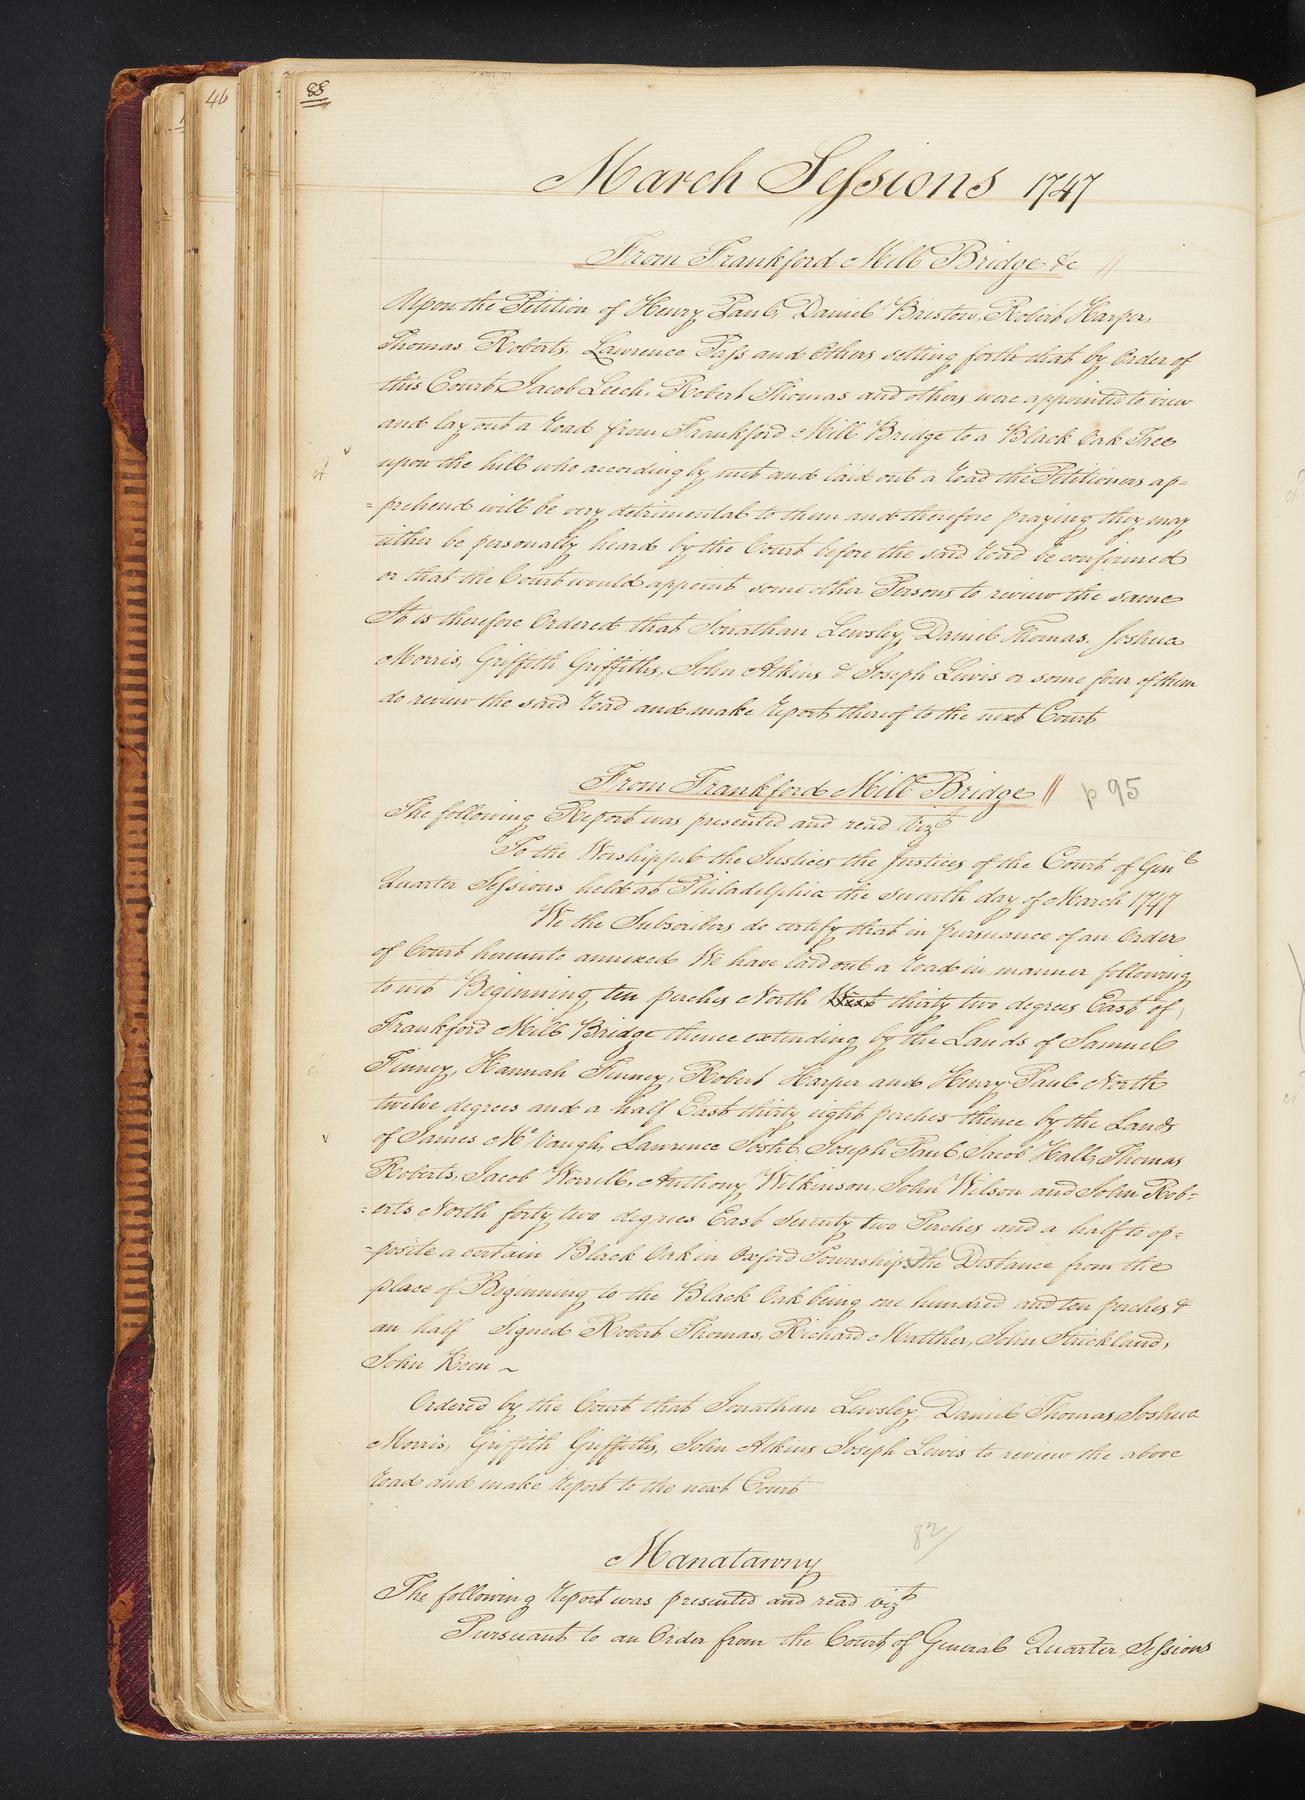 46
88
March Sessions 1747
From Frankford Mill Bridge &c //
Upon the Petition of Henry Paul, Daniel Bristow, Robert Harper,
Thomas Roberts, Lawrence Pass and others setting forth that by Order of
this Court Jacob Leech, Robert Thomas and others, were appointed to view
and lay out a road from Frankford Mill Bridge to a Black Oak Tree
upon the hill who accordingly met and laid out a road the Petitioners ap=
=prehend will be very detrimental to them and therefore praying they may
either be personally heard by the Court before the said road be confirmed
or that the Court would appoint some other Persons to review the same
It is therefore Ordered that Jonathan Lewsley, Daniel Thomas, Joshua
Morris, Griffith Griffiths, John Atkins & Joseph Lewis or some four of them
do review the said road and make report thereof to the next Court
From Frankford Mill Bridge // p 95
The following Report was presented and read vizt
To the Worshippful the Justices the Justices of the Court of Genl
Quarter Sessions held at Philadelphia the seventh day of March 1747
We the Subscribers do certify that in pursuance of an Order
of Court hereunto annexed We have laid out a road in manner following
to wit Beginning ten perches North West thirty two degrees East of
Frankford Mill Bridge thence extending by the Lands of Samuel
Finney, Hannah Finney, Robert Harper and Henry Paul North
twelve degrees and a half East thirty eight perches thence by the Lands
of James McVaugh, Lawrence Joseph Paul, Jacob Hall, Thomas
Roberts, Jacob Worrell, Anthony Wilkinson, John Wilson and John Rob=
=erts North forty two degrees East Seventy two Perches and a half to op=
=posite a certain Black Oak in Oxford Township the Distance from the
place of Beginning to the Black Oak being one hundred and ten perches &
an half Signed Robert Thomas, Richard Matther, John Strickland,
John Keen ~
Ordered by the Court that Jonathan Lewsley, Daniel Thomas, Joshua
Morris, Griffith Griffiths, John Atkins Joseph Lewis to review the above
road and make report to the next Court
82/
Manatawny
The following report was presented and read vizt
Pursuant to an Order from the Court of General Quarter Sessions